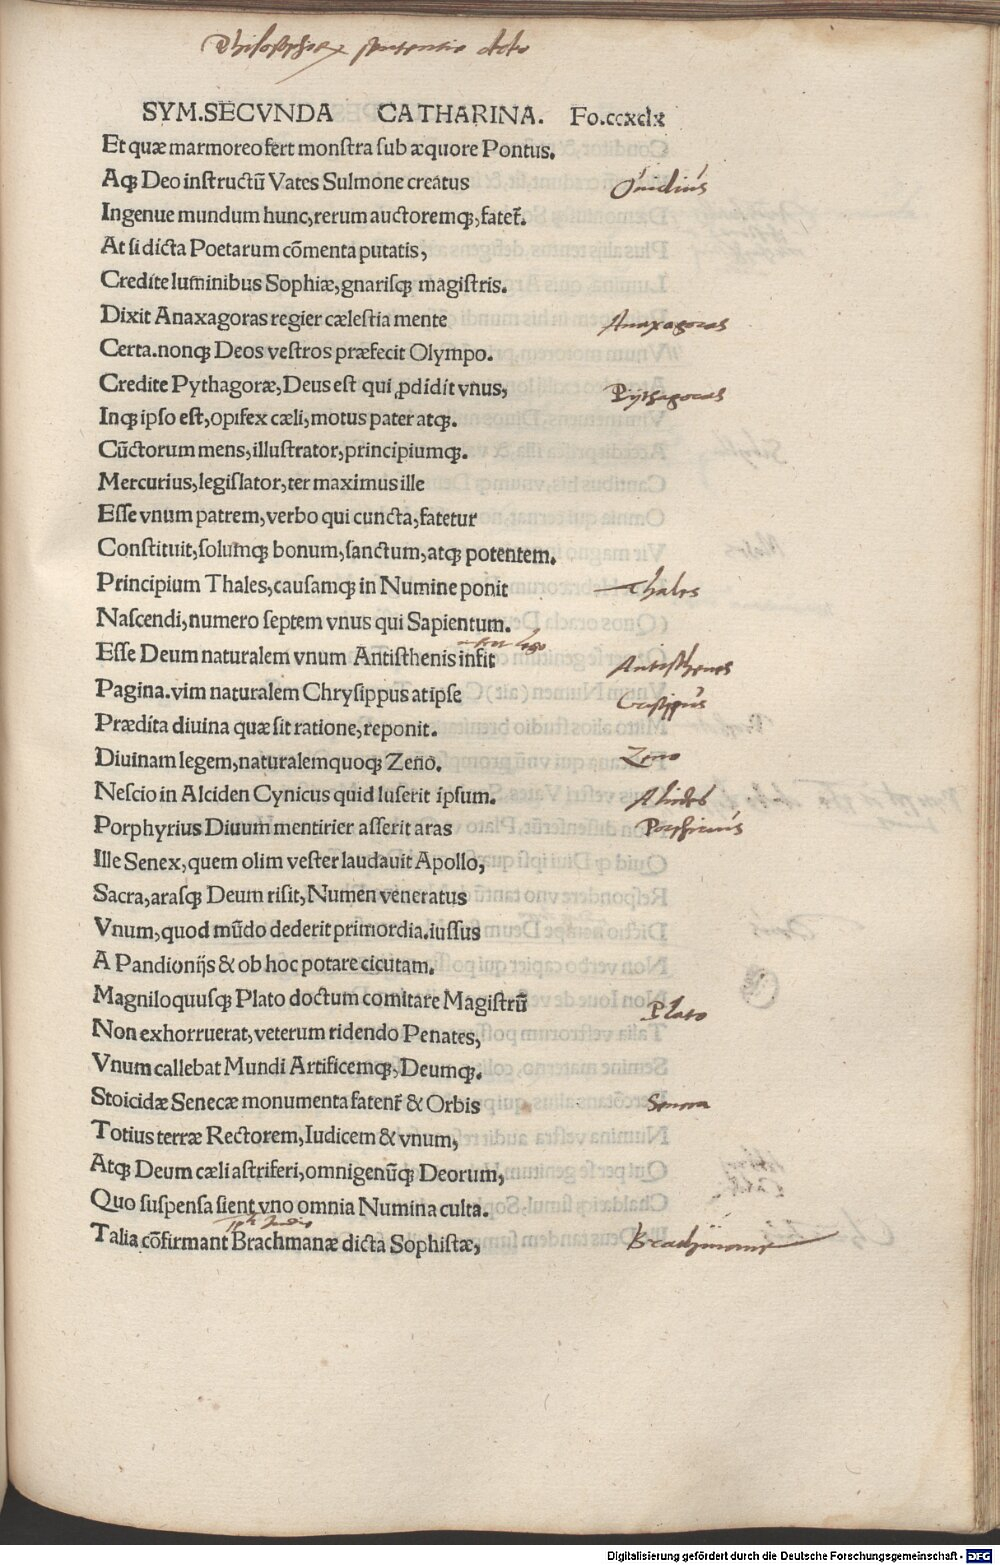 SYM.SECVNDA CATHARINA. Fo.ccxclx
Et quæ marmoreo fert monstra sub æquore Pontus.
Aqꝫ Deo instructũ Vates Sulmone creatus
Ouidius
Ingenue mundum hunc, rerum auctoremqꝫ, fatet᷑.
At si dicta Poetarum cõmenta putatis,
Credite luminibus Sophiæ, gnarisqꝫ magistris.
Dixit Anaxagoras regier cælestia mente
Anaxagoras
Certa. nonqꝫ Deos vestros præfecit Olympo.
Credite Pythagoræ, Deus est qui ꝓdidit vnus,
Pythagoras
Inqꝫ ipso est, opifex cæli, motus pater atqꝫ.
Cũctorum mens, illustrator, principiumqꝫ.
Mercurius, legislator, ter maximus ille
Esse vnum patrem, verbo qui cuncta, fatetur
Constituit, solumqꝫ bonum, sanctum, atqꝫ potentem.
Principium Thales, causamqꝫ in Numine ponit
Thales
Nascendi, numero septem vnus qui Sapientum.
Esse Deum naturalem vnum Antisthenis infit
Antisthenes
Pagina. vim naturalem Chrysippus at ipse
Crisippus
Prædita diuina quæ sit ratione, reponit.
Diuinam legem, naturalem quoqꝫ Zeno.
Zeno
Nescio in Alciden Cynicus quid luserit ipsum.
Alcides
Porphyrius Diuum mentirier asserit aras
Porphirius
Ille Senex, quem olim vester laudauit Apollo,
Sacra, arasqꝫ Deum risit, Numen veneratus
Vnum, quod mũdo dederit primordia. iussus
A Pandionijs & ob hoc potare cicutam.
Magniloquusqꝫ Plato doctum comitare Magistrũ
Plato
Non exhorruerat, veterum ridendo Penates,
Vnum callebat Mundi Artificemqꝫ, Deumqꝫ.
Stoicidæ Senecæ monumenta fatent᷑ & Orbis
Seneca
Totius terræ Rectorem, Iudicem & vnum,
Atqꝫ Deum cæli astriferi, omnigenũqꝫ Deorum,
Quo suspensa sient vno omnia Numina culta.
Talia cõfirmant Brachmanæ dicta Sophistæ,
Digitalisierung gefördert durch die Deutsche Forschungsgemeinschaft - DFG